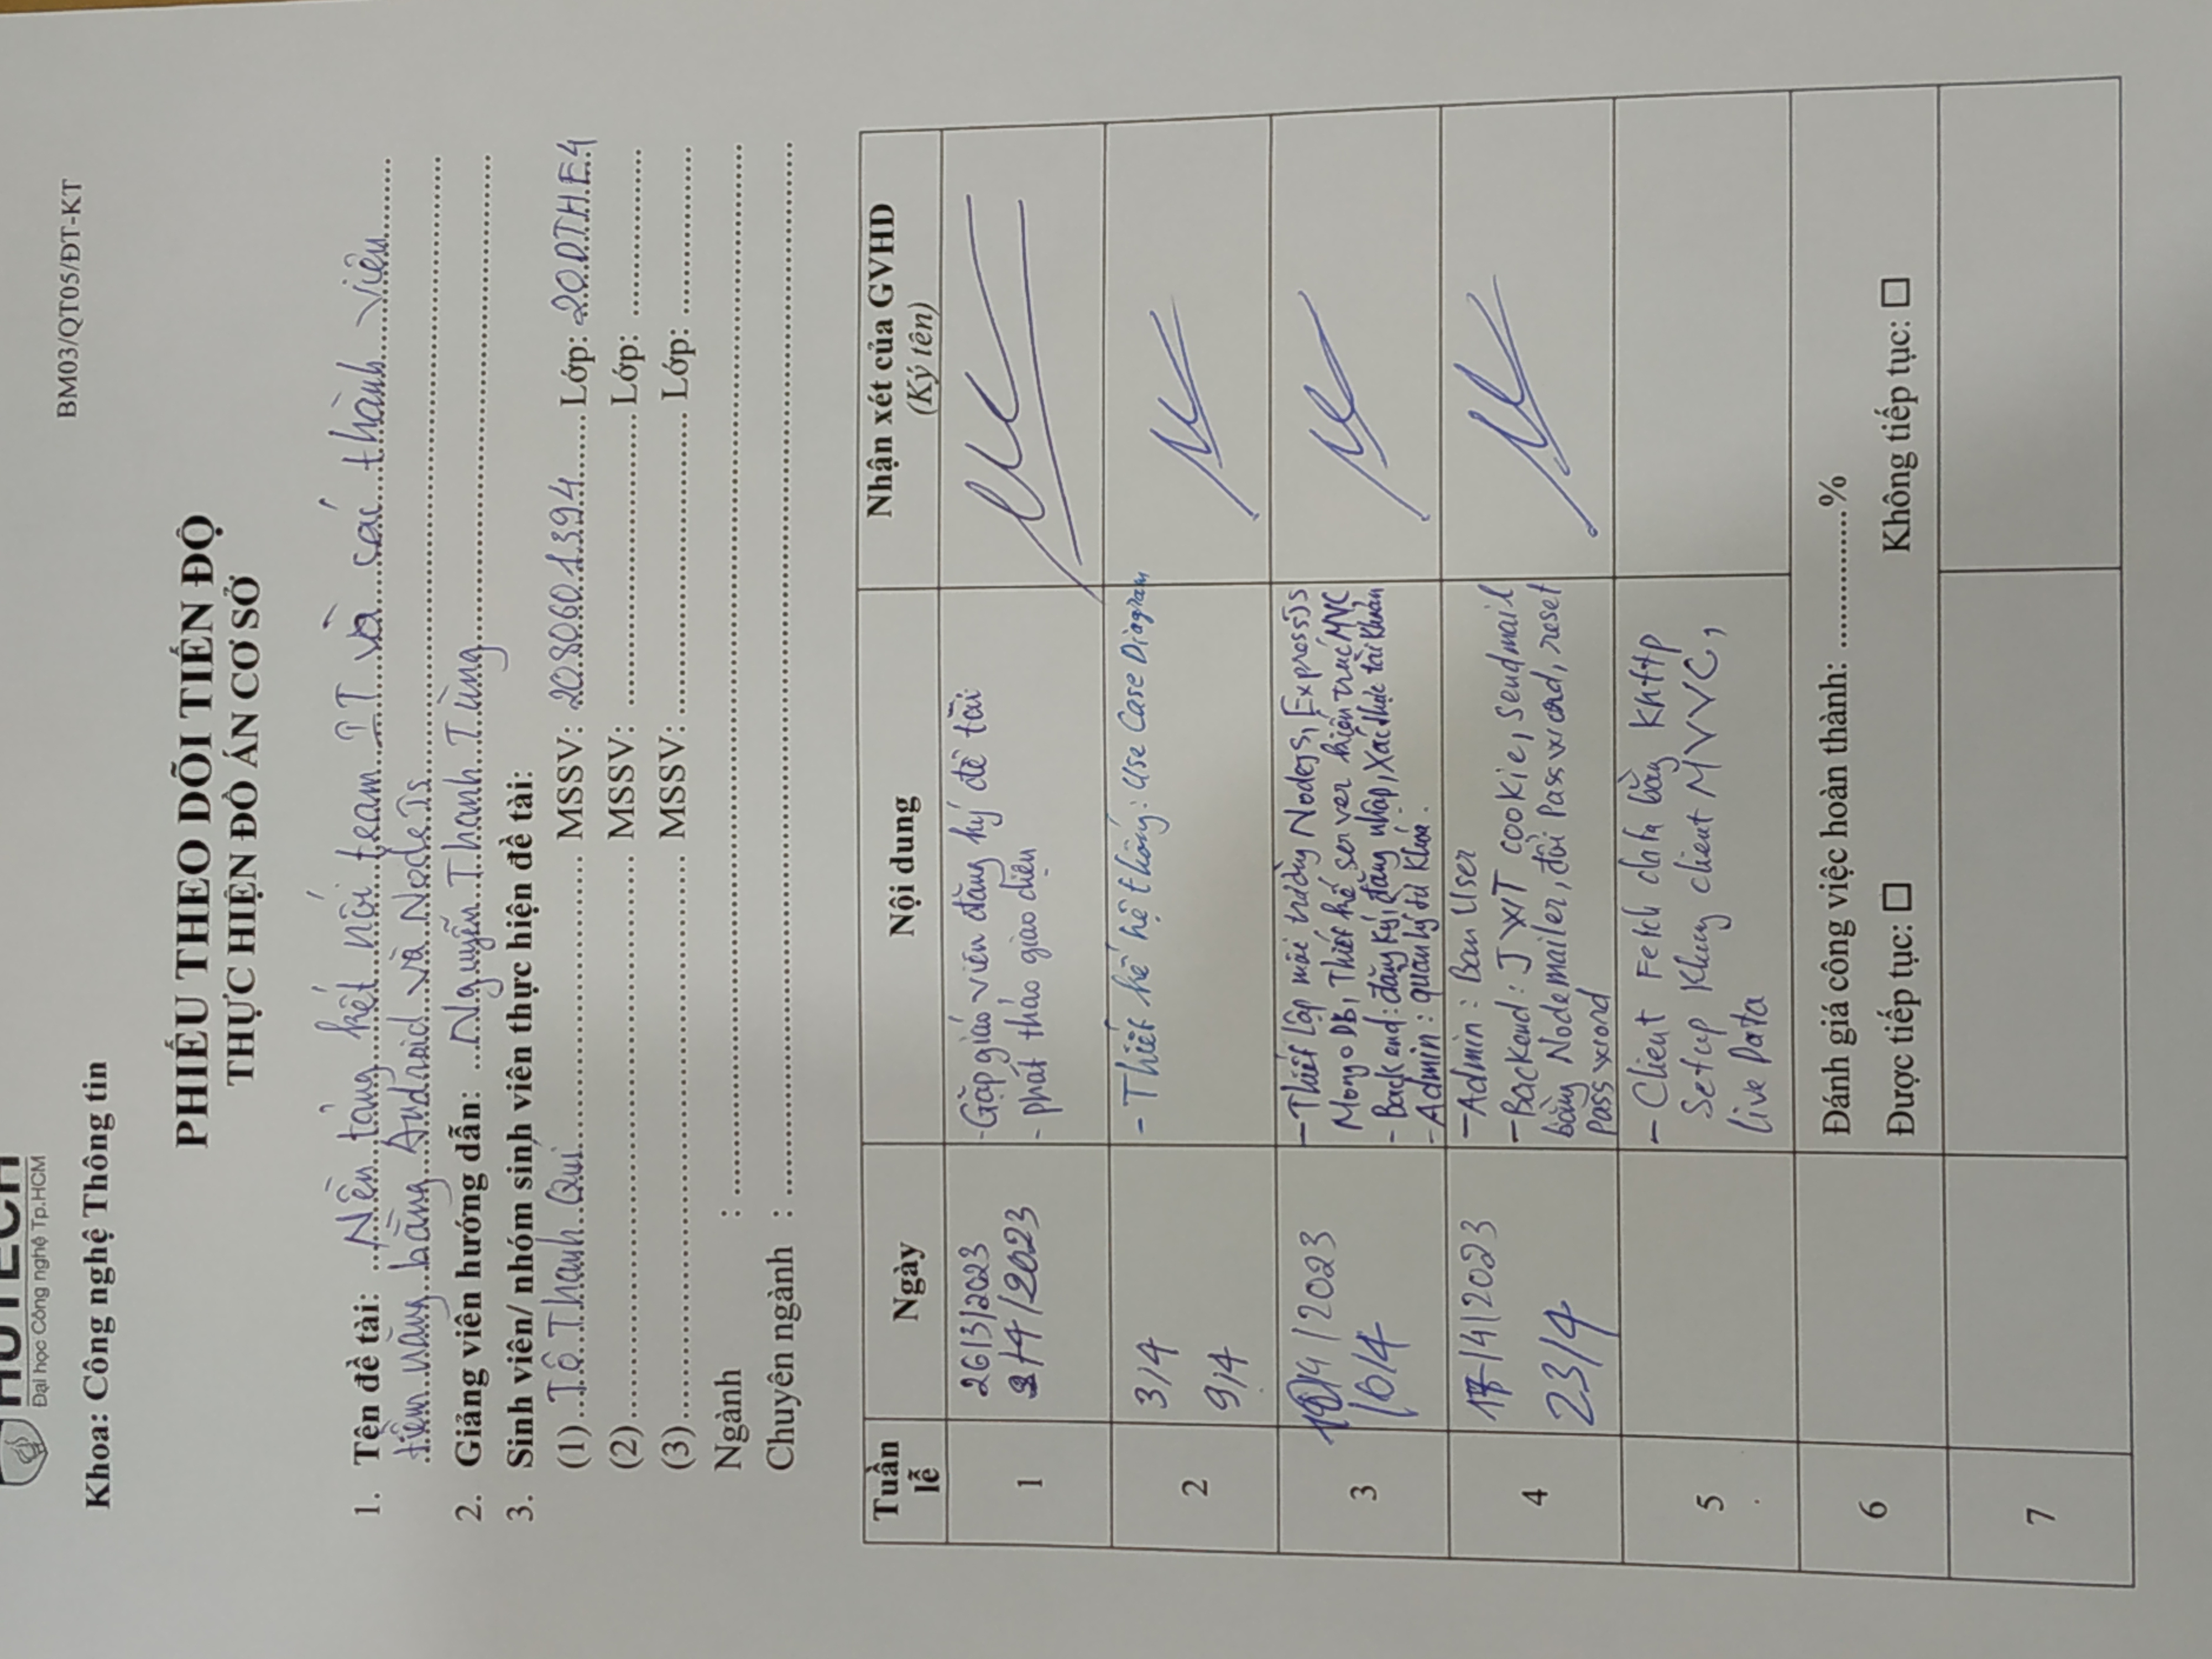 HUTECH
Đại học Công nghệ Tp.HCM
BM03/QT05/ĐT-KT
Khoa: Công nghệ Thông tin
PHIẾU THEO DÕI TIẾN ĐỘ
THỰC HIỆN ĐỒ ÁN CƠ SỞ
1. Tên đề tài: Nền tảng kết nối team IT và các thành viên
tiềm năng bằng Android và NodeJs
2. Giảng viên hướng dẫn: Nguyễn Thanh Tùng
3. Sinh viên/ nhóm sinh viên thực hiện đề tài:
(1) Tô Thanh Qui MSSV: 2080601394 Lớp: 20DTHE4
(2) MSSV: Lớp:
(3) MSSV: Lớp:
Ngành :
Chuyên ngành :
Tuần lễ Ngày Nội dung Nhận xét của GVHD
(Ký tên)
1
26/3/2023
2/4/2023
- Gặp giáo viên đăng ký đề tài
- phát thảo giao diện
2
3/4
9/4
- Thiết kế hệ thống: Use Case Diagram
3
/4/2023
- Thiết lập môi trường NodeJS, ExpressJS
MongoDB, Thiết kế server kiến trúc MVC
- Backend: đăng ký, đăng nhập, Xác thực tài khoản
- Admin: quản lý từ khoá.
4
17/4/2023
23/4
- Admin: Ban User
- Backend: JWT cookie, sendmail
bằng Nodemailer, đổi Password, reset
Password
5
- Client Fetch data bằng
Setup Khung client MVVC,
live Data
6
Đánh giá công việc hoàn thành: ...............%
Được tiếp tục: ☐ Không tiếp tục: ☐
7